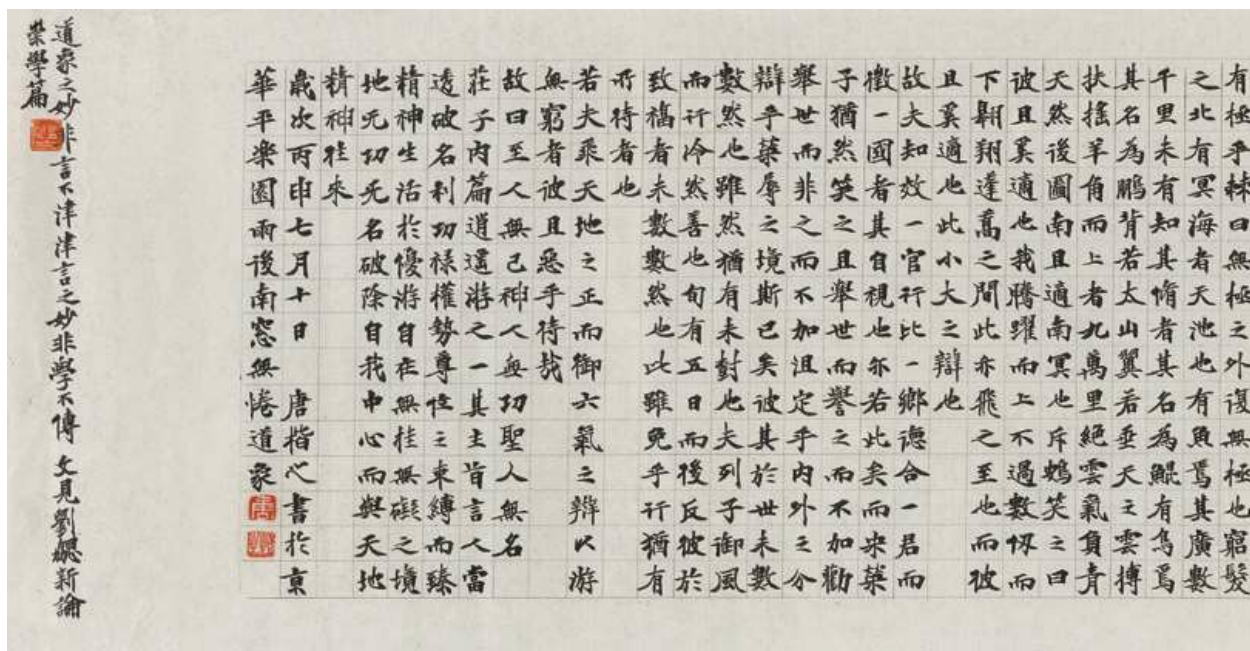 有極乎棘曰無極之外復無極也窮髮
之北有冥海者天池也有魚焉其廣數
千里未有知其脩者其名為鯤有鳥焉
其名為鵬背若太山翼若垂天之雲搏
扶搖羊角而上者九萬里絕雲氣負青
天然後圖南且適南冥也斥鴳笑之曰
彼且奚適也我騰躍而上不過數仞而
下翱翔蓬蒿之間此亦飛之至也而彼
且奚適也此小大之辯也
故夫知效一官行比一鄉德合一君而
徵一國者其自視也亦若此矣而宋榮
子猶然笑之且舉世而譽之而不加勸
舉世而非之而不加沮定乎內外之分
辯乎榮辱之境斯已矣彼其於世未數
數然也雖然猶有未樹也夫列子御風
而行泠然善也旬有五日而後反彼於
致福者未數數然也此雖免乎行猶有
所待者也
若夫乘天地之正而御六氣之辯以游
無窮者彼且惡乎待哉
故曰至人無己神人無功聖人無名
莊子內篇逍遥游之一其主旨言人當
透破名利功祿權勢尊位之束縛而臻
精神生活於優游自在無桂無礙之境
地无功无名破除自我中心而與天地
精神往來
歲次丙申七月十日 唐楷心書於京
華平樂園雨後南窓無惓道象
道象之妙非言不津津言之妙非學不傳 文見劉勰新論
崇學篇